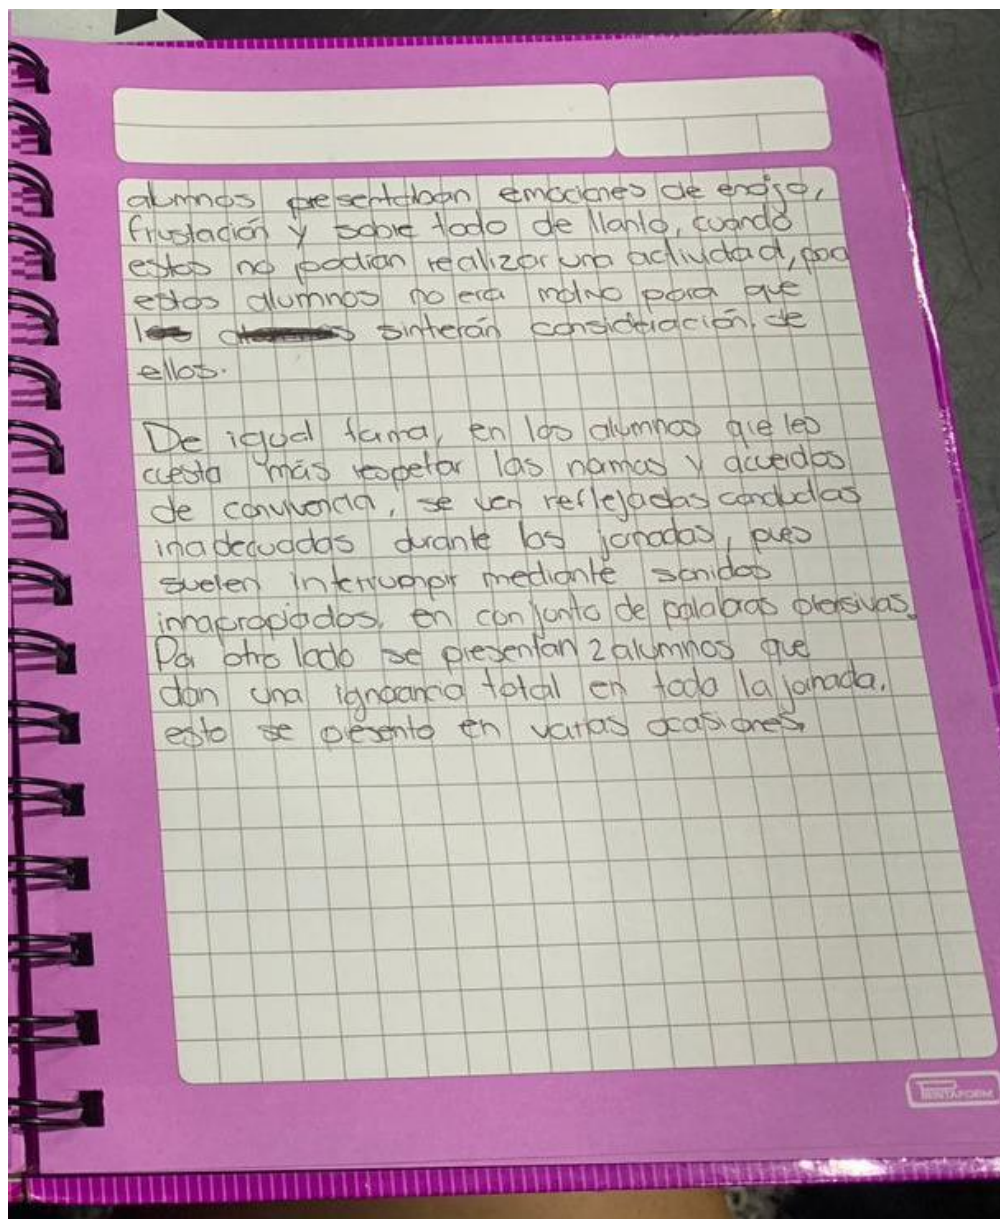 alumnos presentaban emociones de enojo,
frustación y sobre todo de llanto, cuando
estos no podían realizar una actividad, poa
estos alumnos no era motivo para que
sinterán consideración de
ellos.
De igual forma, en los alumnos que les
cuesta más respetar las normas y acuerdos
de convivencia, se ven reflejadas conductas
inadecuadas durante las jornadas, pues
suelen interrumpir mediante sonidos
innapropiados, en conjunto de palabras ofensivas.
Por otro lado se presentan 2 alumnos que
dan una ignorancia total en toda la jornada,
esto se presento en varias ocasiones.
PRINTAFORM